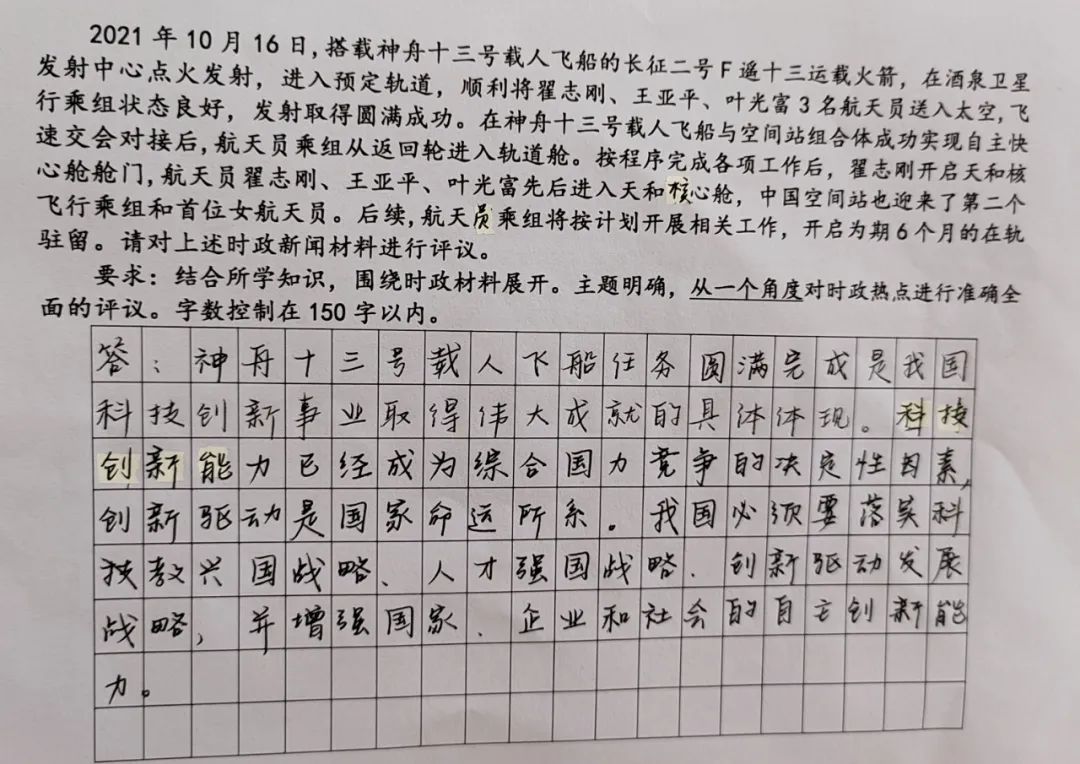 2021 年 10 月 16 日,搭载神舟十三号载人飞船的长征二号 F 遥十三运载火箭，在酒泉卫星
发射中心点火发射，进入预定轨道，顺利将翟志刚、王亚平、叶光富 3 名航天员送入太空,飞
行乘组状态良好，发射取得圆满成功。在神舟十三号载人飞船与空间站组合体成功实现自主快
速交会对接后,航天员乘组从返回轮进入轨道舱。按程序完成各项工作后，翟志刚开启天和核
心舱舱门,航天员翟志刚、王亚平、叶光富先后进入天和核心舱，中国空间站也迎来了第二个
飞行乘组和首位女航天员。后续,航天员乘组将按计划开展相关工作，开启为期 6 个月的在轨
驻留。请对上述时政新闻材料进行评议。
要求：结合所学知识，围绕时政材料展开。主题明确，从一个角度对时政热点进行准确全
面的评议。字数控制在 150 字以内。
答：神舟十三号载人飞船任务圆满完成是我国
科技创新事业取得伟大成就的具体体现。科技
创新能力已经成为综合国力竞争的决定性因素,
创新驱动是国家命运所系。我国必须要落实科
技教兴国战略、人才强国战略、创新驱动发展
战略，并增强国家、企业和社会的自主创新能
力。